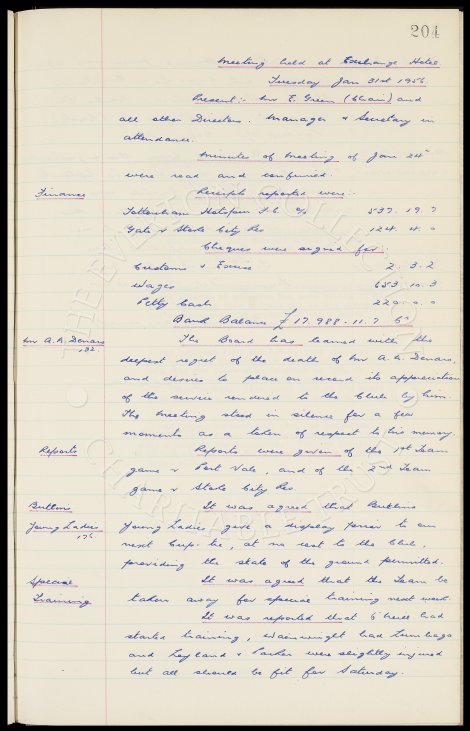 204
Meeting held at Exchange Hotel
Tuesday Jan 31st 1956
Present:- Mr E. Green (Chair) and
all other Directors. Manager & Secretary in
attendance.
Minutes of Meeting of Jan 24th
were read and confirmed.
Finance
Receipts reported were:-
Tottenham Hotspur F.C. a/c 537. 19. 7
Gate v Stoke City Res 124. 4. 0
Cheques were signed for:-
Customs & Excise 2. 3. 2
Wages 653. 10. 3
Petty Cash 220. 0. 0
Bank Balance £17.988. 11. 7
Mr A. A. Denaro
132
The Board has learned with the
deepest regret of the death of Mr A. A. Denaro,
and desires to place on record its appreciation
of the service rendered to the Club by him.
The Meeting stood in silence for a few
moments as a token of respect to his memory.
Reports
Reports were given of the 1st Team
game v Port Vale, and of the 2nd Team
game v Stoke City Res
Butlins
Young Ladies
It was agreed that Butlins
Young Ladies give a display prior to our
next Cup-tie, at no cost to the Club,
providing the state of the ground permitted.
Special
Training
It was agreed that the Team be
taken away for special training next week.
It was reported that O'Neill had
started training, Wainwright had Lumbago
and Leyland & Parker were slightly injured
but all should be fit for Saturday.
THE EVERTON COLLECTION
CHARITABLE TRUST